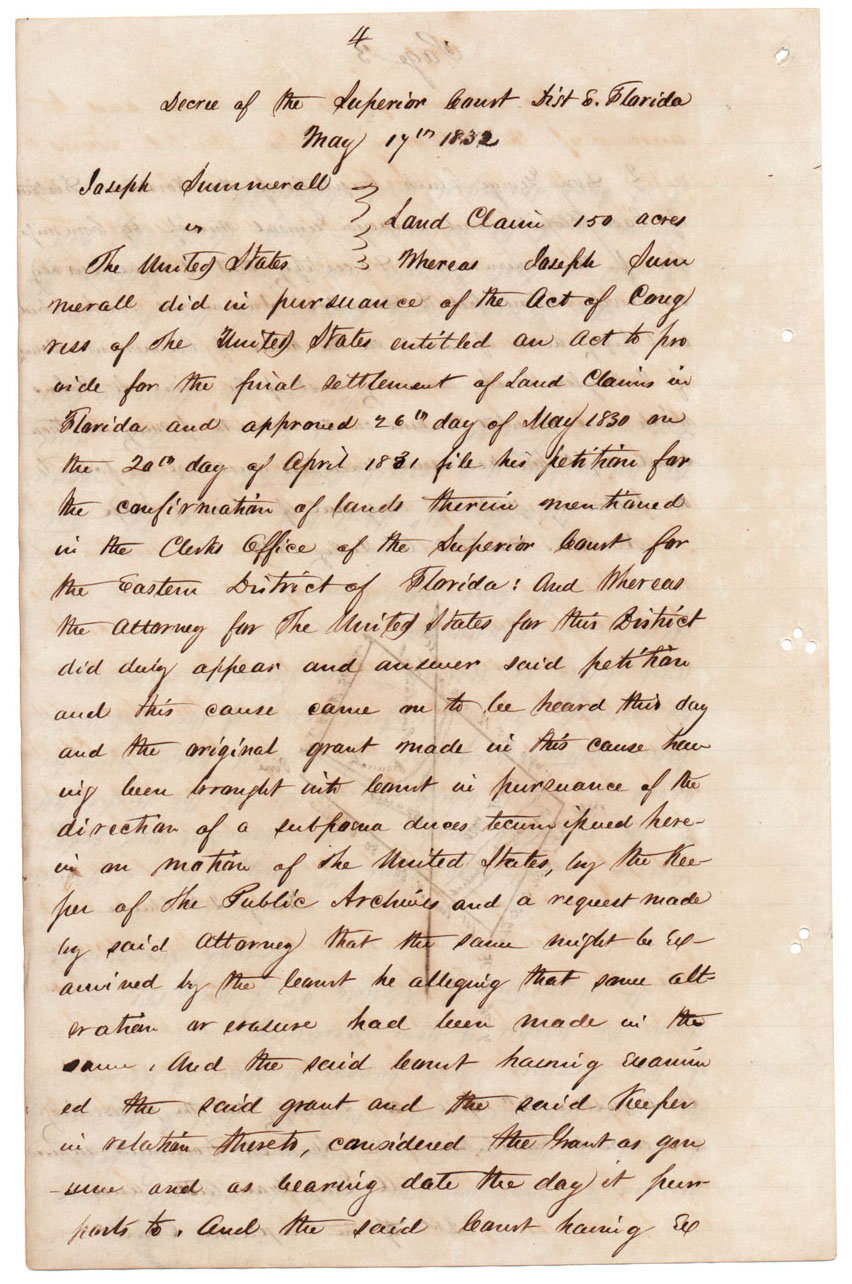 4
Decree of the Superior Court Dist E. Florida
May 17th 1832
Joseph Summerall
vs
Land Claim 150 acres
The United States
Whereas Joseph Sum
merall did in pursuance of the Act of Cong
ress of the United States entitled an Act to pro
vide for the final settlement of Land Claims in
Florida and approved 26th day of May 1830 on
the 20th day of April 1831 file his petition for
the confirmation of lands therein mentioned
in the Clerks Office of the Superior Court for
the Eastern District of Florida: And Whereas
the Attorney for The United States for this District
did duly appear and answer said petition
and this cause came on to be heard this day
and the original grant made in this cause hav
ing been brought into Court in pursuance of the
direction of a subpoena duces tecum issued here-
in on motion of the United States, by the Kee-
per of the Public Archives and a request made
by said Attorney that the same might be Ex-
amined by the Court he alleging that some alt-
eration or erasure had been made in the
same, And the said Court having Examin
ed the said grant and the said Keeper
in relation thereto, considered the Grant as gen
-uine and as bearing date the day it pur-
ports to. And the said Court having Ex